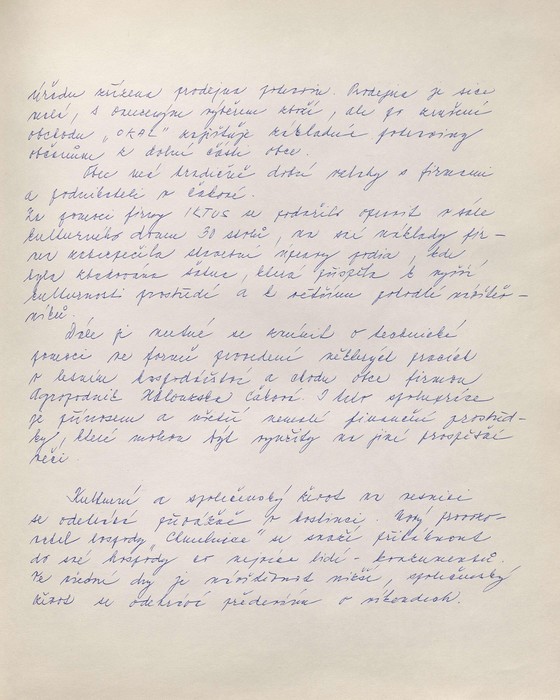 úřadu zřízena prodejna potravin. Prodejna je sice
malá, s omezeným výběrem zboží, ale po zrušení
obchodu „OKAL" zajišťuje základní potraviny
občanům z dolní části obce.
Obec má tradičně dobré vztahy s firmami
a podnikateli v Cákově.
Za pomoci firmy IKTUS se podařilo opravit v sále
kulturního domu 30 stolů, na své náklady fir-
ma zabezpečila stavební úpravy podia, kde
byla zbudována šatna, která přispěla k vyšší
kulturnosti prostředí a k většímu pohodlí návštěv-
níků.
Dále je nutné se zmínit o technické
pomoci ve formě provedení některých pracích
v lesním hospodářství a chodu obce firmou
Agropodnik Cákov. I tato spolupráce
je přínosem a ušetří nemalé finanční prostřed-
ky, které mohou být využity na jiné prospěšné
věci.
Kulturní a společenský život na vesnici
se odehrává převážně v hostinci. Nový provozo-
vatel hospody se snaží přiláknout
do své hospody co nejvíce lidí - konzumentů.
Ve všední dny je návštěvnost nižší, společenský
život se odehrává především o víkendech.